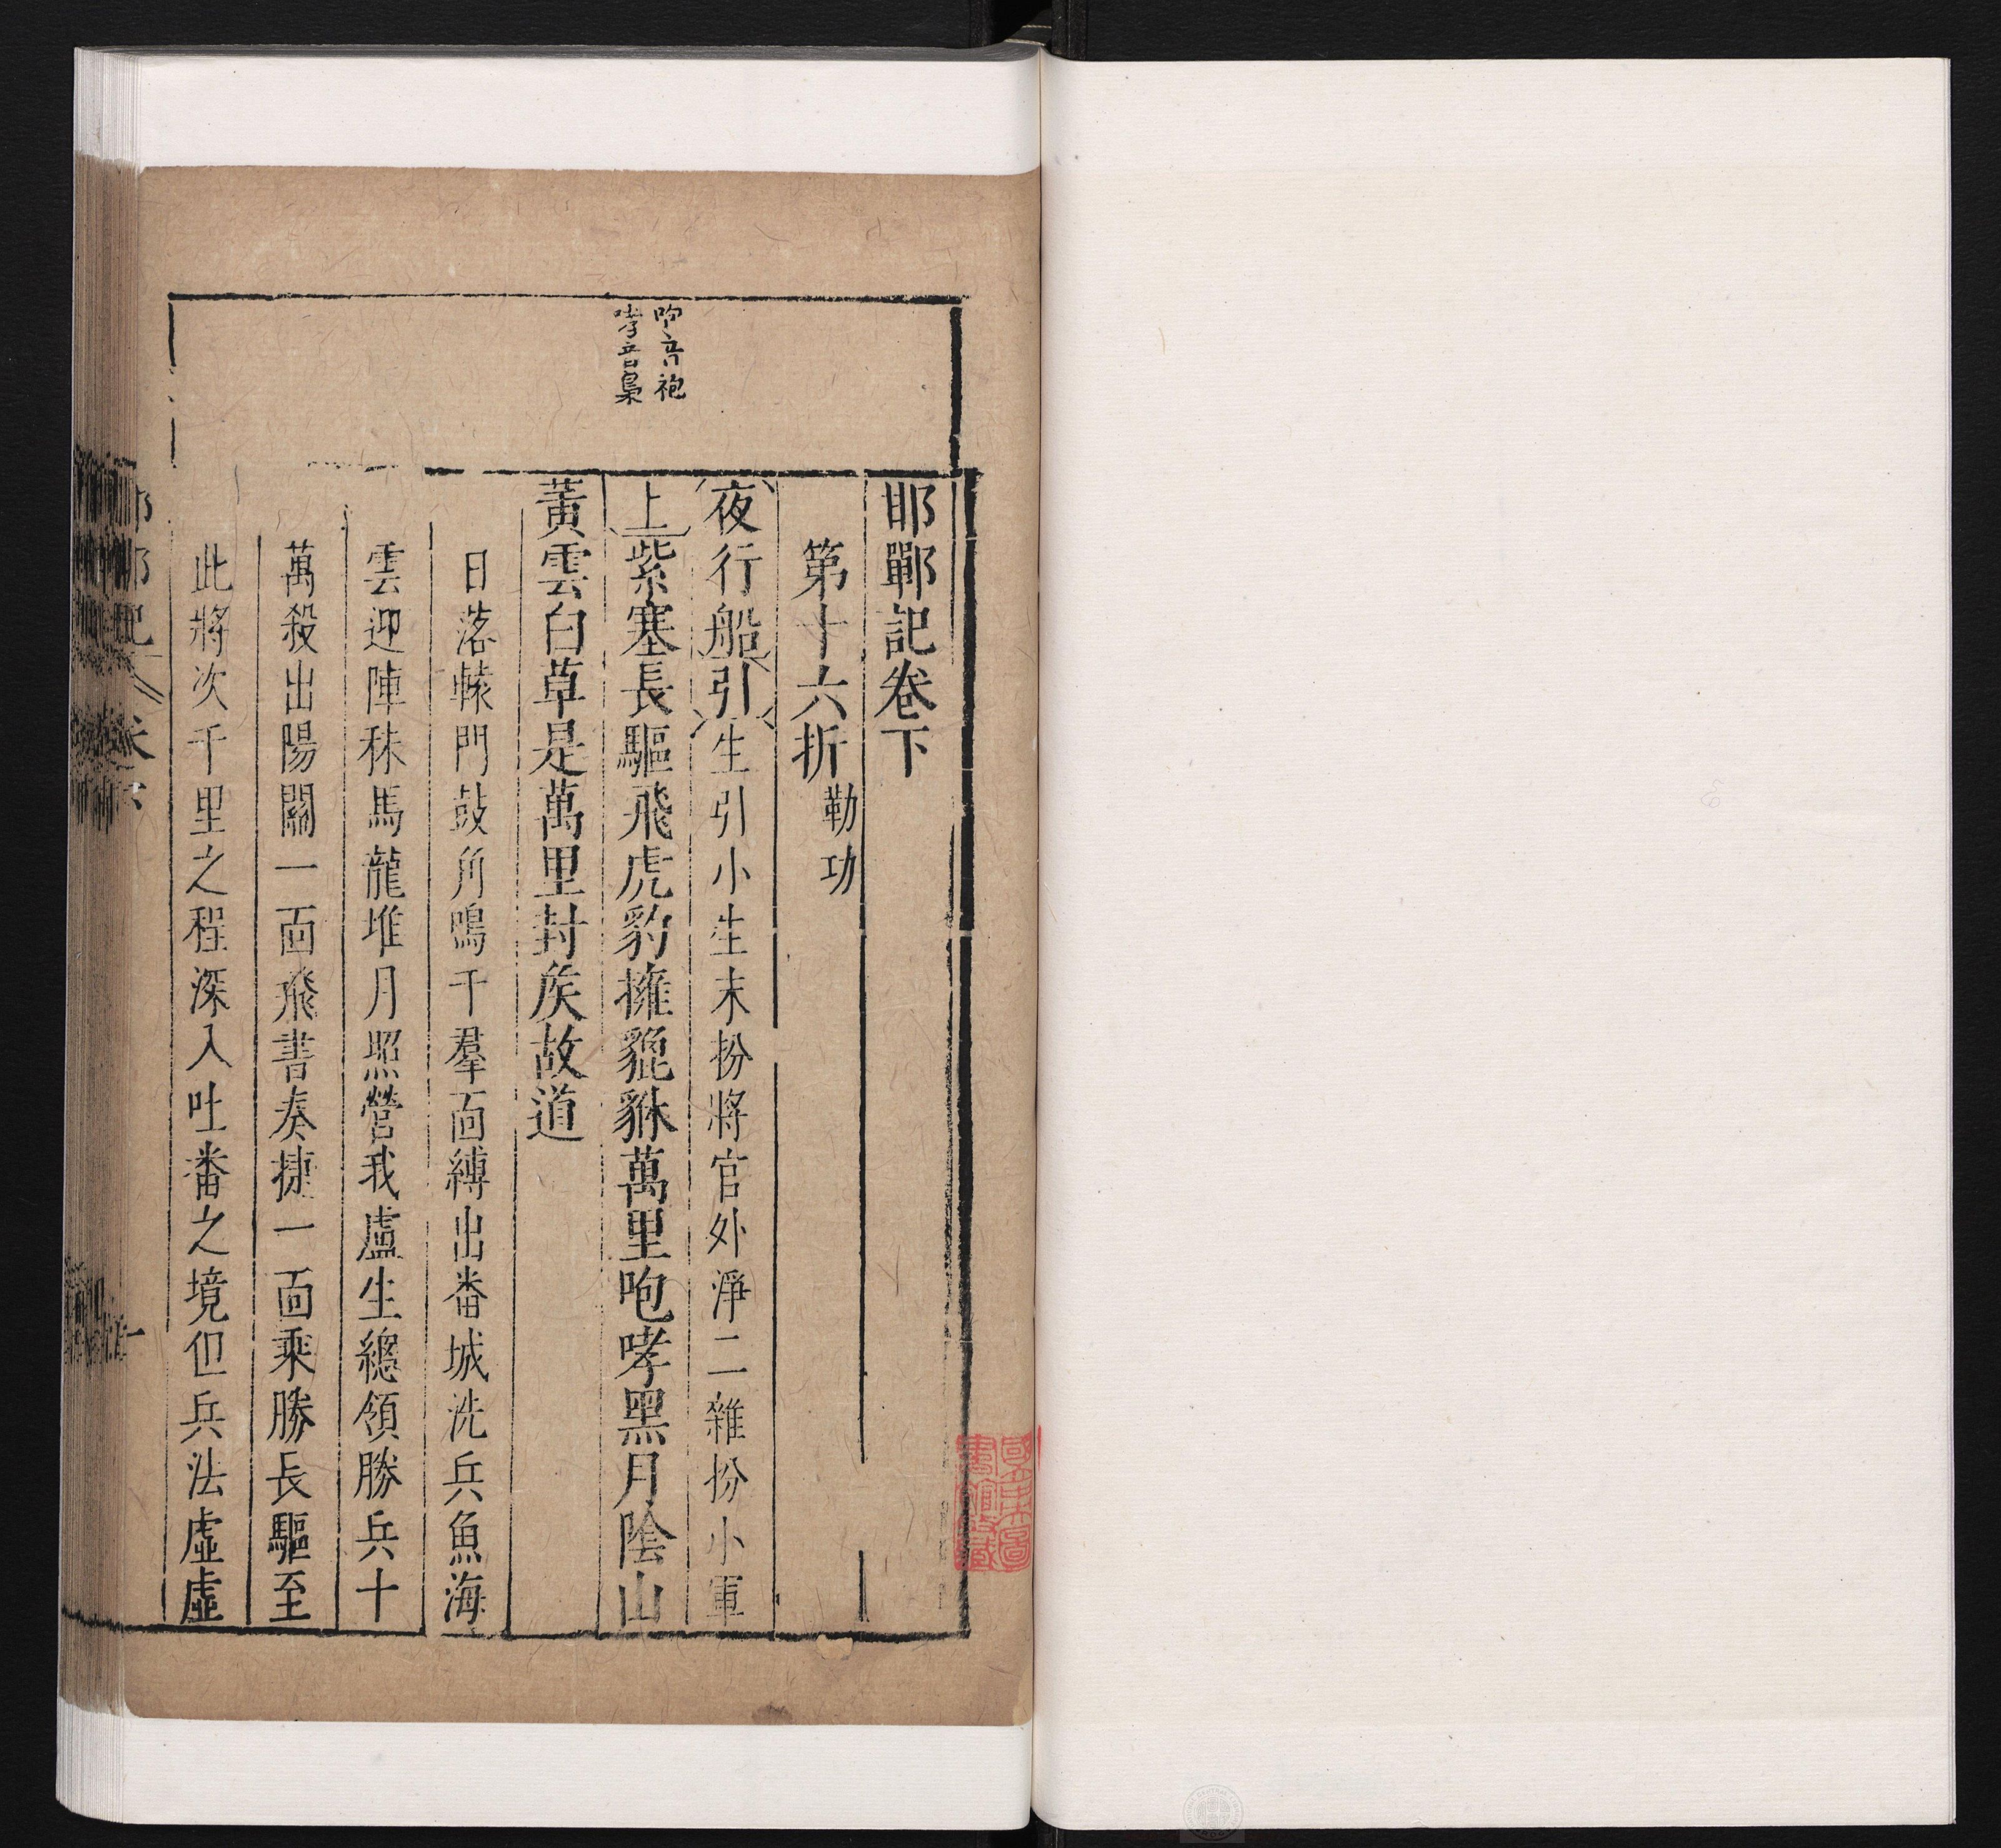 咆音袍
哮音梟
邯鄲記卷下
第十六折 勒功
夜行船引生引小生末扮將官外淨二雜扮小軍
上紫塞長驅飛虎豹擁貔貅萬里咆哮黑月陰山
黃雲白草是萬里封矦故道
日落轅門鼓角鳴千羣面縛出番城洗兵魚海
雲迎陣秣馬龍堆月照營我盧生總領勝兵十
萬殺出陽關一面飛書奏捷一面乘勝長驅至
此將次千里之程深入吐番之境但兵法虛虛
國立中央圖
書館收藏